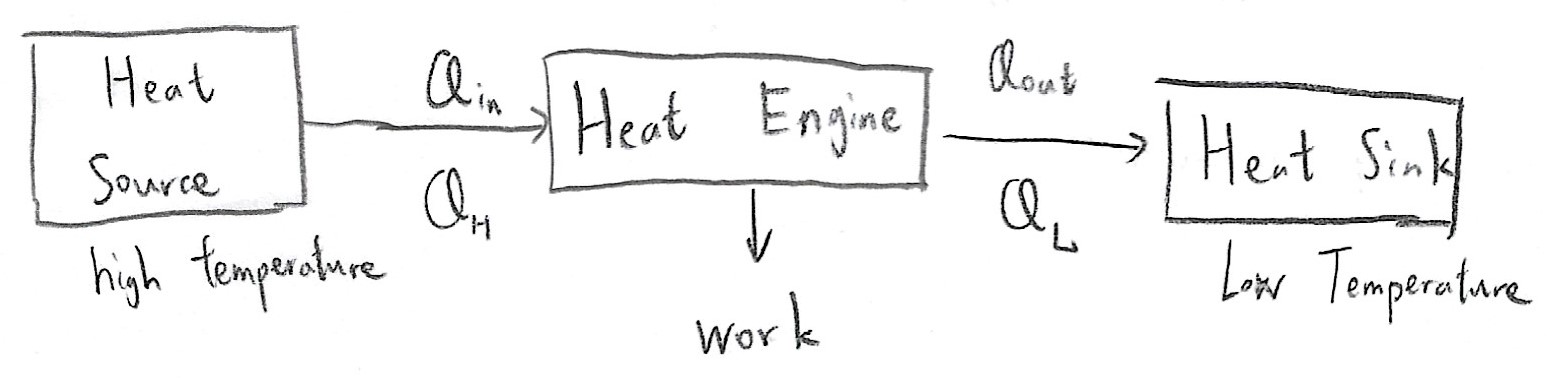 Heat
Source
high temperature
Qin
QH
Heat Engine
work
Qout
QL
Heat Sink
Low Temperature